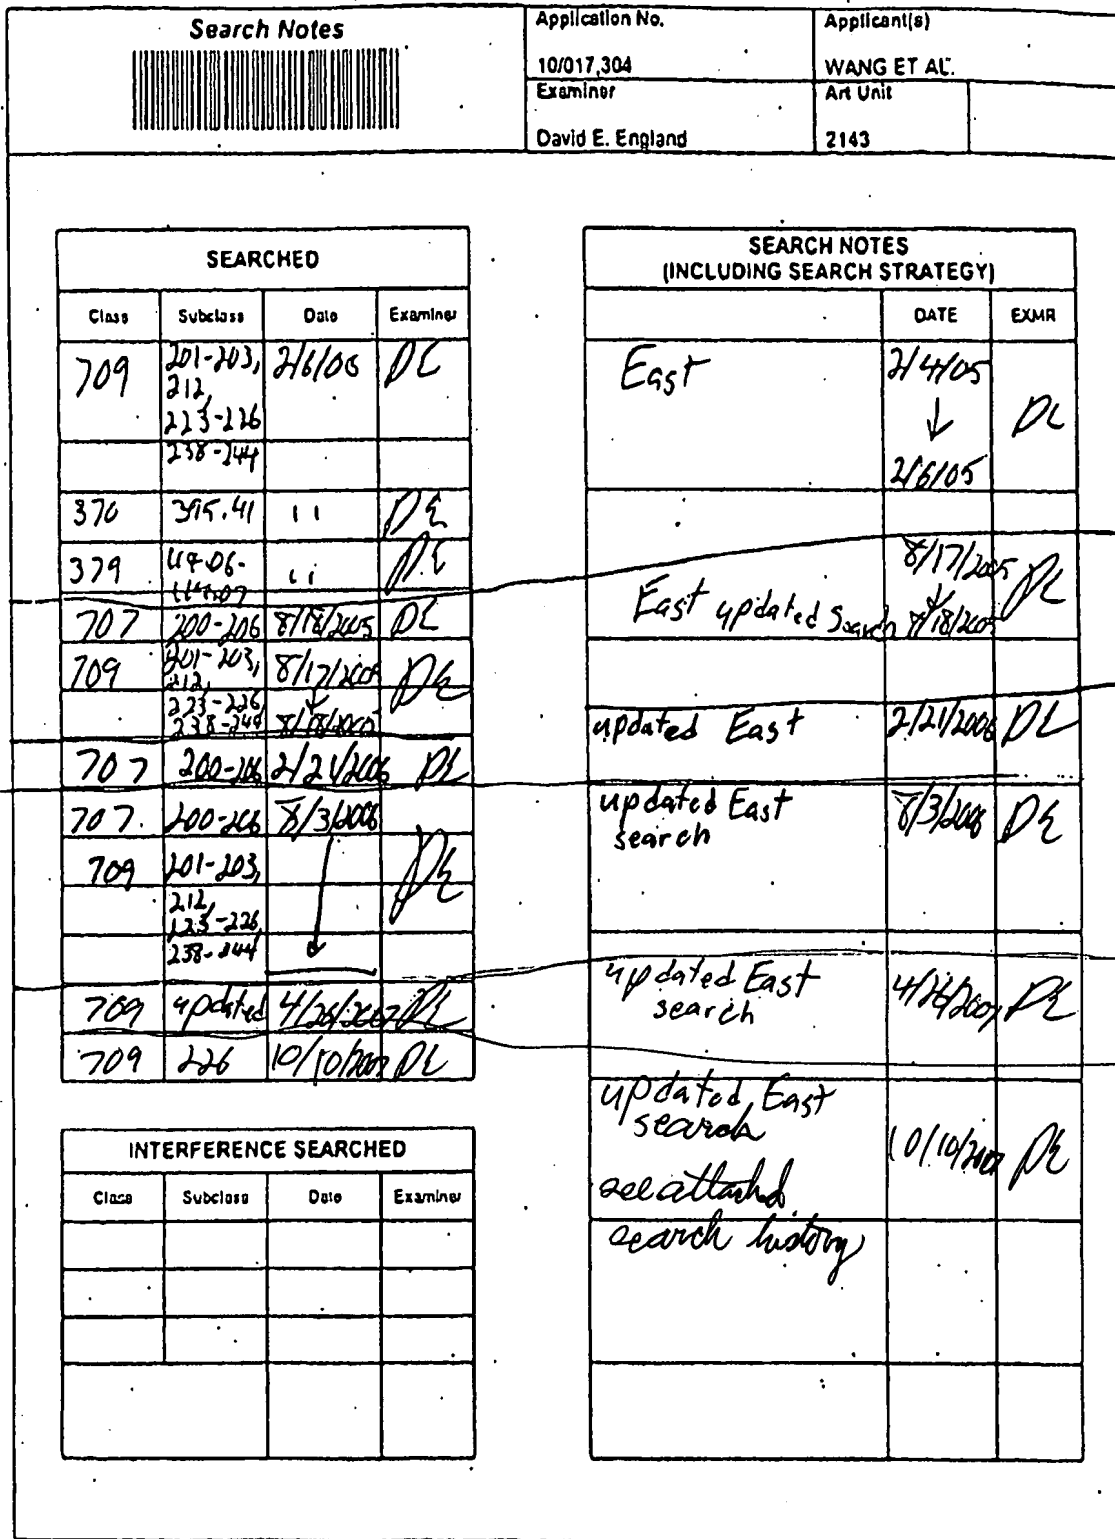 Search Notes
Application No.
10/017,304
Applicant(s)
WANG ET AL.
Examiner
David E. England
Art Unit
2143
SEARCHED
Class Subclass Date Examiner
709 201-203, 2/6/05 DE
212,
223-226
238-244
370 395.41 11 DE
379 DE
707 200-206 8/18/2005 DE
709 201-203, 8/17/2005 DE
212,
223-226,
238-244 8/18/2005
707 200-206 2/21/2006 DE
707. 200-206 8/3/2006
709 201-203, DE
212,
223-226,
238-244
709 updated 4/26/2007 DE
709 226 10/10/2007 DE
INTERFERENCE SEARCHED
Class Subclass Date Examiner
SEARCH NOTES
(INCLUDING SEARCH STRATEGY)
DATE EXMR
East 2/4/05
↓ DE
2/6/05
8/17/2005 DE
East updated Search 8/18/2005
updated East 2/21/2006 DE
updated East 8/3/2006 DE
search
updated East 4/26/2007 DE
search
updated East
search 10/10/2007 DE
see attached
search history